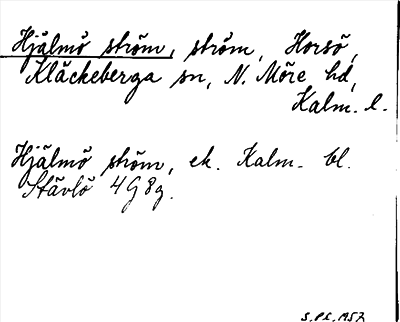 Hjälmö ström, ström, Horsö,
Kläckeberga sn, N. Möre hd,
Kalm. l.
Hjälmö ström, ek. Kalm. bl.
Stävlö 4G8g.